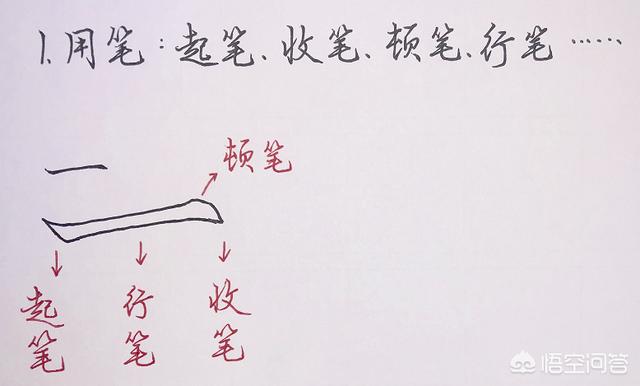 1.用笔：起笔、收笔、顿笔、行笔……
一
顿笔
起笔
行笔
收笔
悟空问答